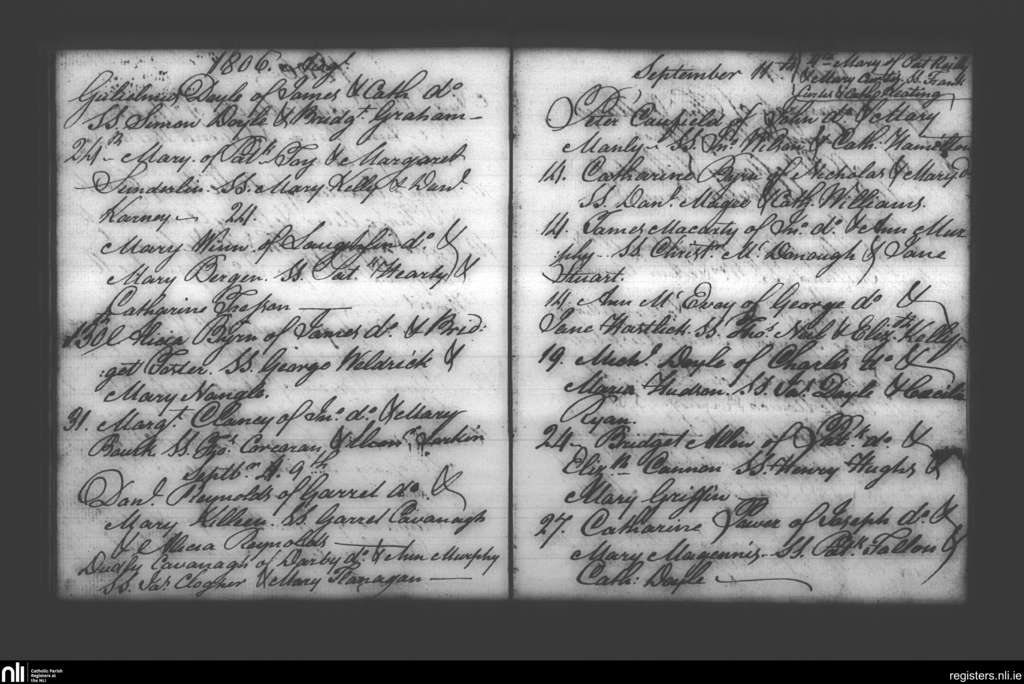 1806. Aug.t
Gulielmus Doyle of James & Cath. do.
SS. Simon Doyle & Bridg.t Graham —
24th — Mary of Pat.k Foy & Margaret
Sunderlin. SS. Mary Kelly & Dan.l
Karney — 24.
Mary Winn of Laughlin do. &
Mary Bergen. SS. Pat.k Hearty &
Catharine —
30 Alicia Byrn of James do. & Brid:
:get Foster. SS. George Woldrick &
Mary Nangle.
31. Marg.t Clancy of Jno. do. & Mary
SS. Thos. Corcoran & Larkin
Septbr. 9th
Dan.l Reynolds of Garret do. &
Mary Killeen. SS. Garret Cavanagh
& Alicia Reynolds —
Dudly Cavanagh of Darby do. & Ann Murphy
SS. Jas. Clogher & Mary Flanagan —
September 11th Mary of Pat Reilly
& Mary Curtis SS. Frank
Curtis & Cath. Keating
Peter Caufield of John do. & Mary
Manly — SS. Jno. & Cath. Hamilton
14. Catharine Byrn of Nicholas & Mary do.
SS. Dan.l Magee & Cath. Williams
14. James Macarty of Jno. do. & Ann Mur
:phy — SS. Christ.r McDonough & Jane
Stuart.
14. Ann McEvoy of George do. &
Jane SS. Thos. & Eliz.th Kelly
19. Mich.l Doyle of Charles do. &
Maria Hudson. SS. Jas. Doyle & Cecilia
Ryan.
24 — Bridget of Pat.k do. &
Eliz.th Cannon SS. Henry Hughs &
Mary Griffin —
27. Catharine Power of Joseph do. &
Mary Magennis. SS. Pat.k Fallon &
Cath: Doyle —
nli
Catholic Parish
Registers at
the NLI
registers.nli.ie